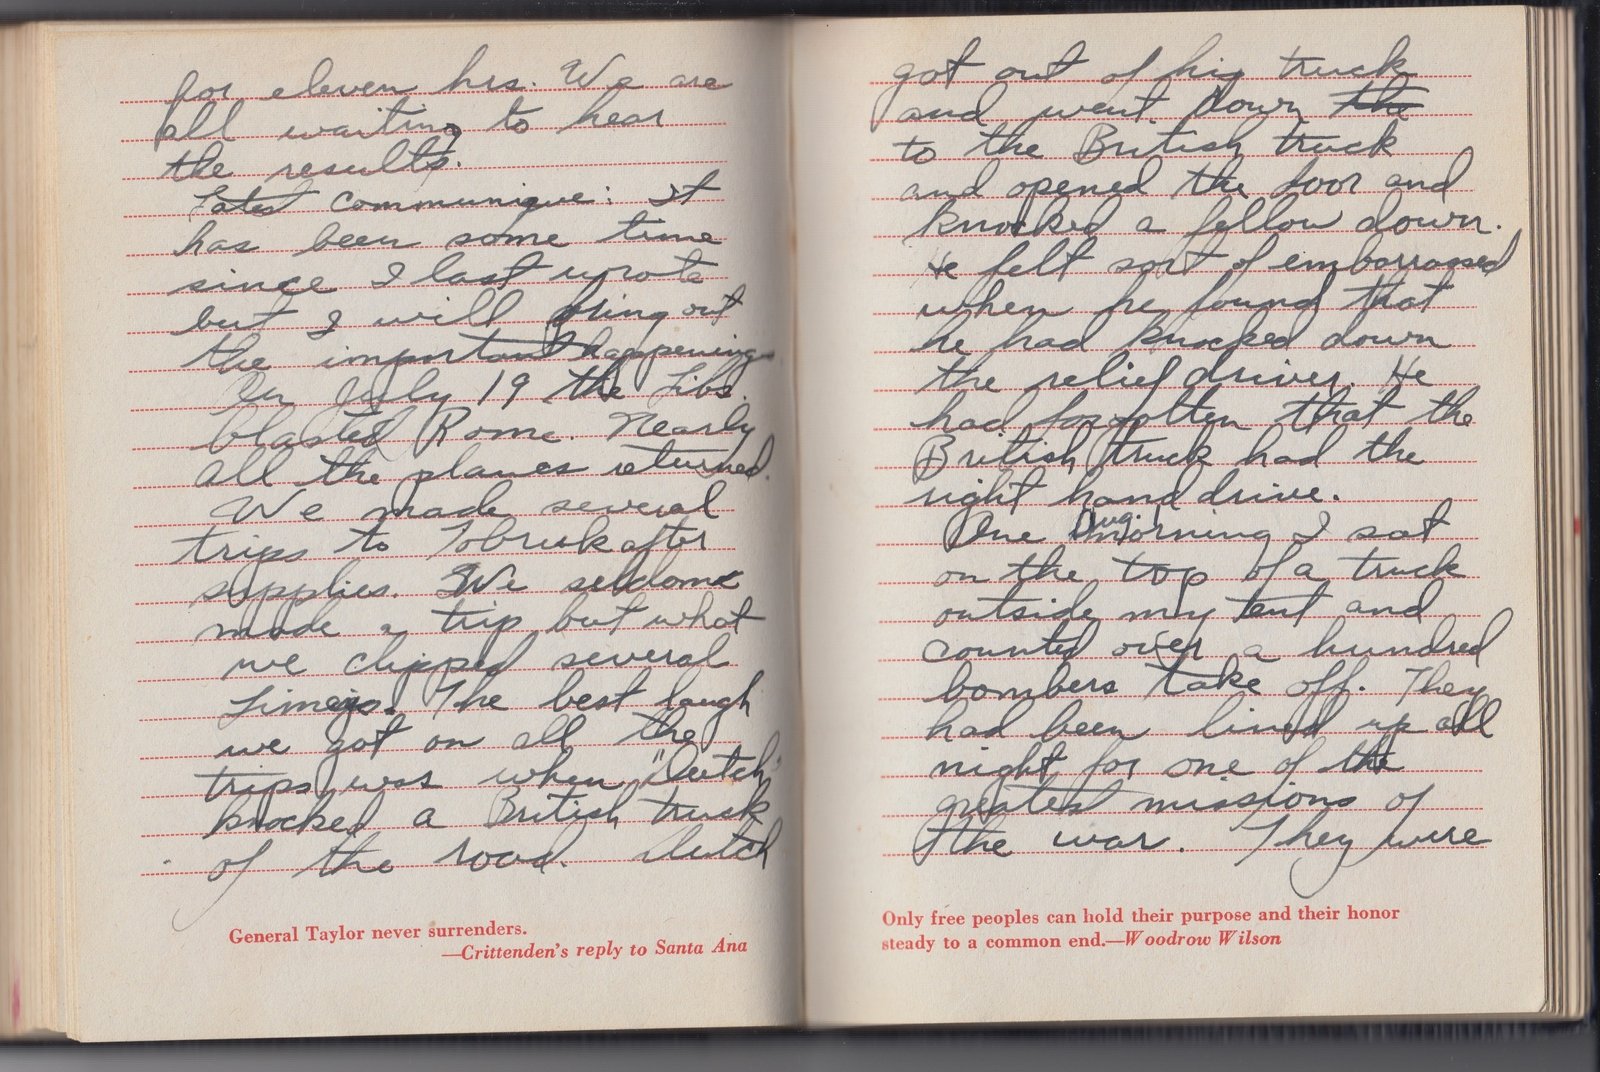 for eleven hrs. We are
all waiting to hear
the results.
Latest communique: It
has been some time
since I last wrote
but I will bring out
the important happenings
On July 19 the Libs.
blasted Rome. Nearly
all the planes returned.
We made several
trips to Tobruk after
supplies. We seldom
made a trip but what
we clipped several
Limeys. The best laugh
we got on all the
trips was when "Dutch"
knocked a British truck
of the road. Dutch
General Taylor never surrenders.
—Crittenden's reply to Santa Ana
got out of his truck
and went down the
to the British truck
and opened the door and
knocked a fellow down.
He felt sort of embarrassed
when he found that
he had knocked down
the relief driver. He
had forgotten that the
British truck had the
right hand drive.
One Aug. morning I sat
on the top of a truck
outside my tent and
counted over a hundred
bombers take off. They
had been lined up all
night for one of the
greatest missions of
the war. They were
Only free peoples can hold their purpose and their honor
steady to a common end.—Woodrow Wilson